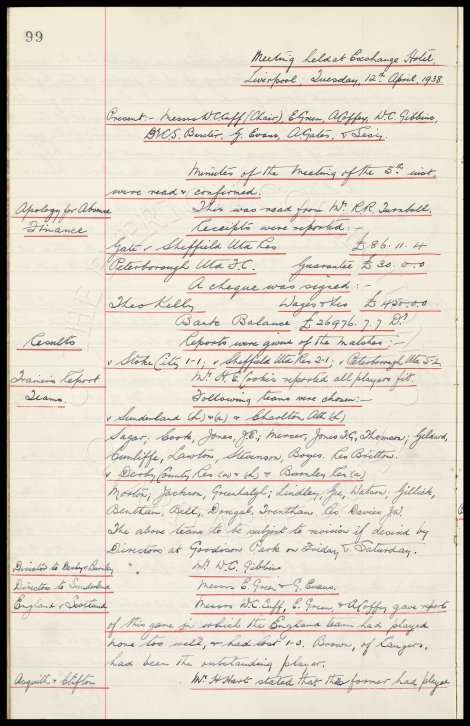 99
Meeting held at Exchange Hotel,
Liverpool, Tuesday, 12th April, 1938.
Present:- Messrs W. Cuff (Chair), E. Green, A. Coffey, W.C. Gibbins,
C.S. Baxter, G. Evans, A. Gates, &
Minutes of the Meeting of the 5th inst.
were read & confirmed.
Apology for Absence
This was read from Mr R.R. Turnbull.
Finance
Receipts were reported:-
Gate v Sheffield Utd Res £86.11.4
Peterborough Utd F.C. Guarantee £30.0.0
A cheque was signed:-
Theo Kelly Wages &c £450.0.0
Bank Balance £26976.7.7 Dr
Results
Reports were given of the matches:-
v Stoke City 1-1, v Sheffield Utd Res 2-1, v Peterborough Utd 5-2
Trainer's Report
Mr. H.E. Cooke reported all players fit.
Teams.
Following teams were chosen:-
v Sunderland (h) & (a) & Charlton Ath (h)
Sagar, Cook, Jones, J.E.; Mercer, Jones T.G, Thomson; Geldard,
Cunliffe, Lawton, Stevenson, Boyes. Res Britton.
v Derby County Res (a & h) & Burnley Res (a)
Morton; Jackson, Greenhalgh; Lindley, Gee, Watson; Gillick,
Bentham, Bell, Dougal, Trentham. Res Davies Ja.
The above teams to be subject to revision if desired by
Directors at Goodison Park on Friday & Saturday.
Directors to Derby & Burnley
Mr. W.C. Gibbins
Directors to Sunderland
Messrs E. Green & G. Evans.
England v Scotland
Messrs W. Cuff, E. Green, & A. Coffey gave reports
of this game in which the England team had played
none too well, & had lost 1-0. Brown, of Rangers,
had been the outstanding player.
Asquith & Clifton
Mr. H. Hart stated that the former had played